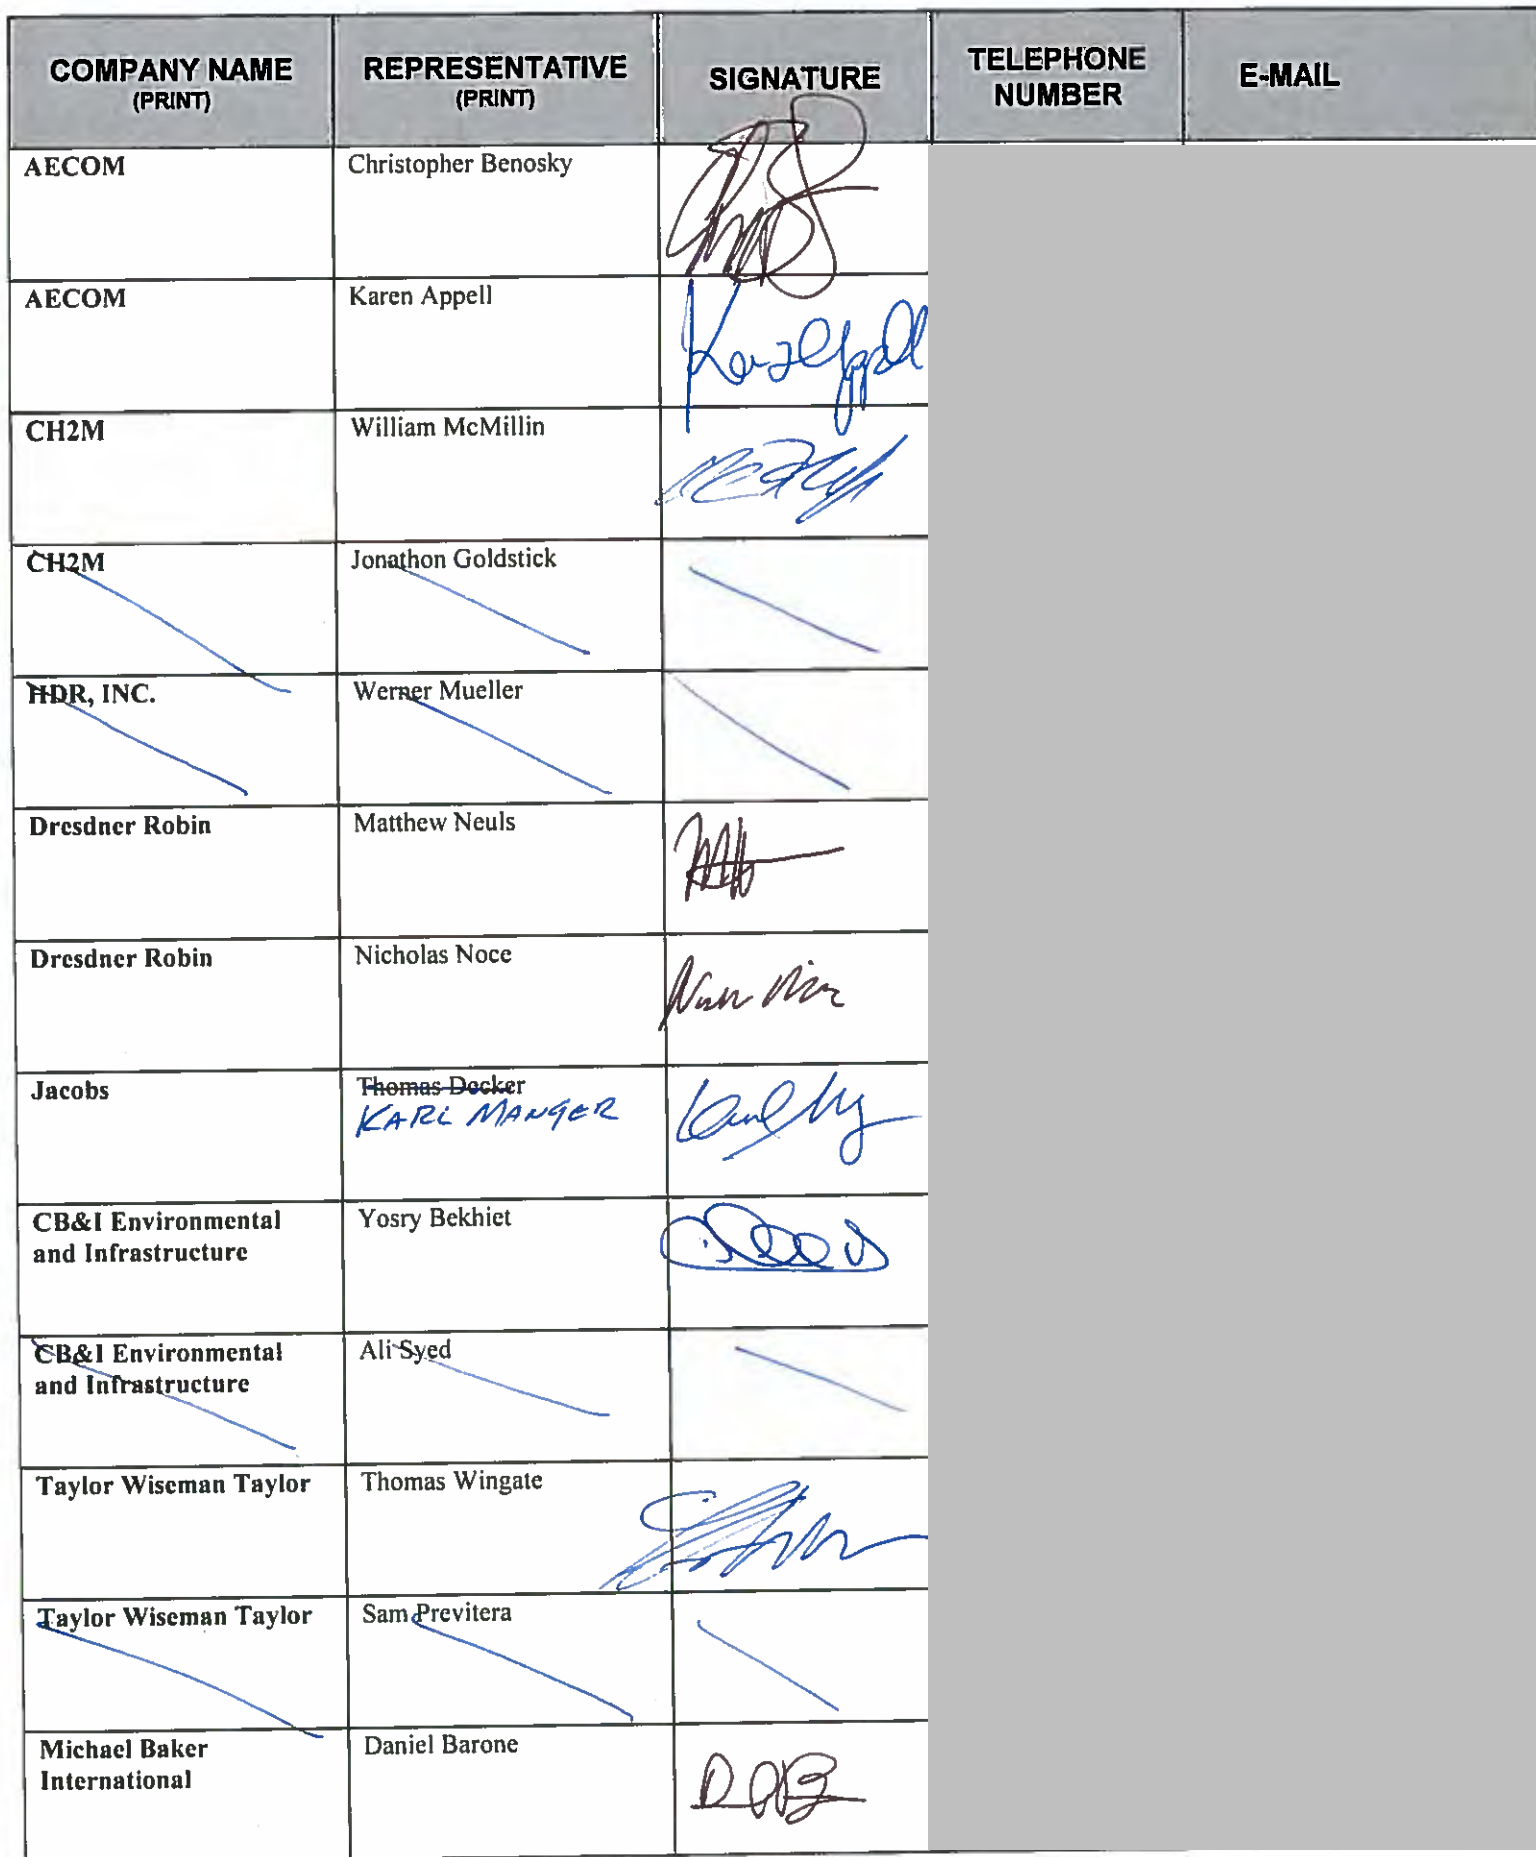 COMPANY NAME
(PRINT)
REPRESENTATIVE
(PRINT)
SIGNATURE
TELEPHONE
NUMBER
E-MAIL
AECOM
Christopher Benosky
AECOM
Karen Appell
CH2M
William McMillin
CH2M
Jonathon Goldstick
HDR, INC.
Werner Mueller
Dresdner Robin
Matthew Neuls
Dresdner Robin
Nicholas Noce
Jacobs
Thomas Decker
KARL MANGER
CB&I Environmental
and Infrastructure
Yosry Bekhiet
CB&I Environmental
and Infrastructure
Ali Syed
Taylor Wiseman Taylor
Thomas Wingate
Taylor Wiseman Taylor
Sam Previtera
Michael Baker
International
Daniel Barone